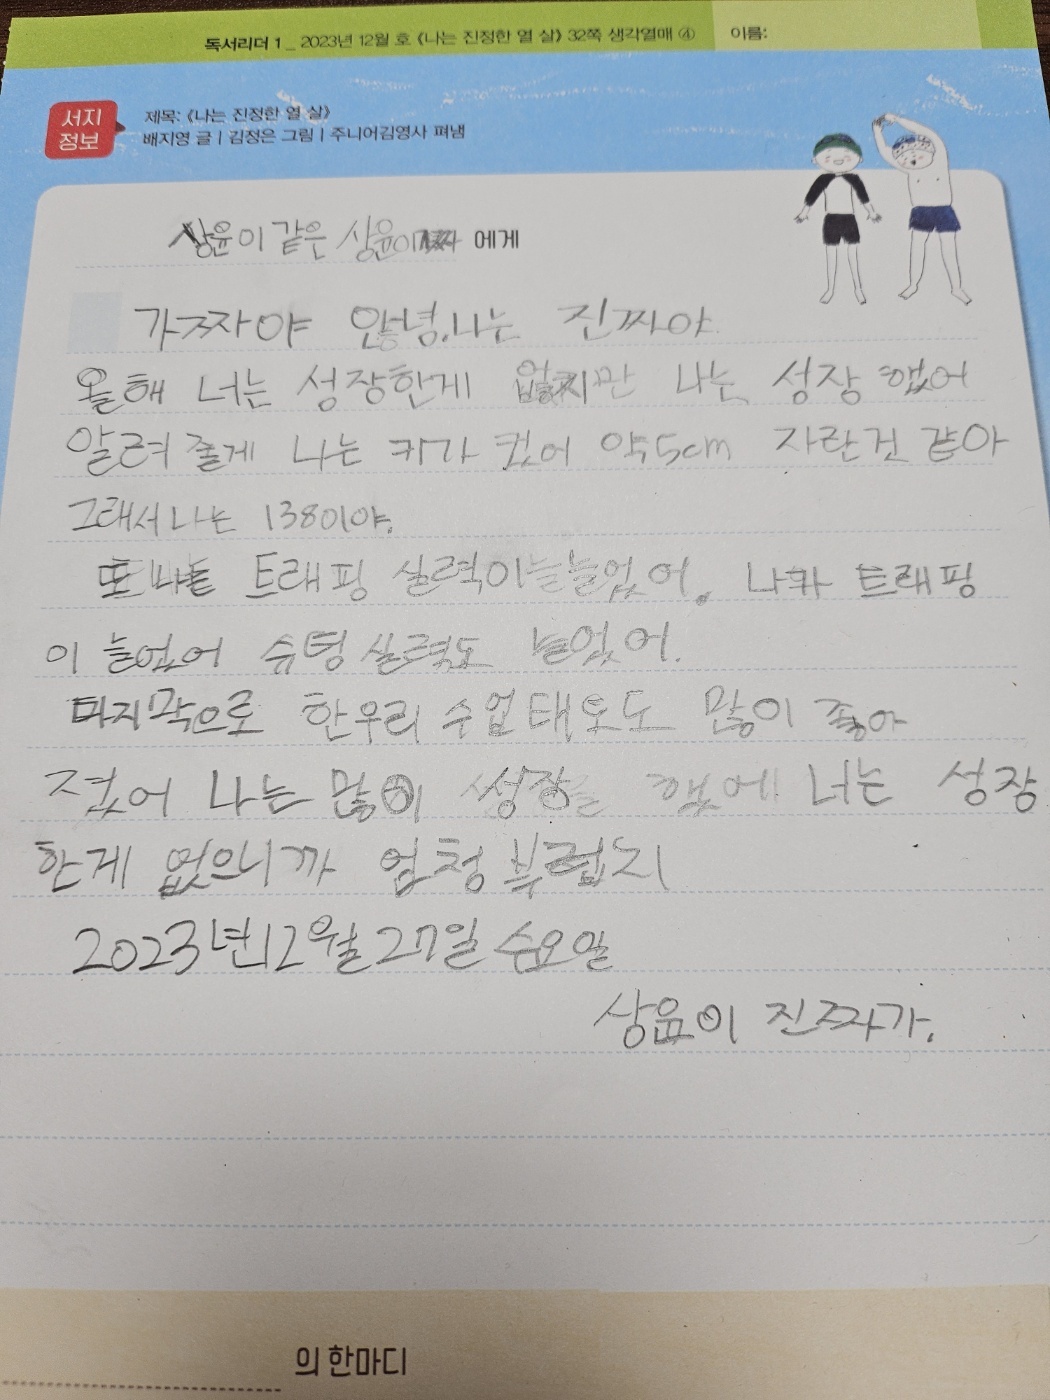 독서리더 1 _ 2023년 12월 호 《나는 진정한 열 살》 32쪽 생각열매 ④ 이름:
서지
정보
제목: 《나는 진정한 열 살》
배지영 글 | 김정은 그림 | 주니어김영사 펴냄
상윤이 같은 상윤이 에게
가짜야 안녕. 나는 진짜야
올해 너는 성장한게 없지만 나는 성장 했어
알려줄게 나는 키가 컸어 약 5cm 자란건 같아
그래서 나는 138이야.
또 나는 트래핑 실력이 늘었어. 나카 트래핑
이 늘었어 슈팅 실력도 늘었어.
마지막으로 한우리 수업태도도 많이 좋아
졌어 나는 많이 성장 했어 너는 성장
한게 없으니까 엄청 부럽지
2023년 12월 27일 수요일
상윤이 진짜가.
의 한마디